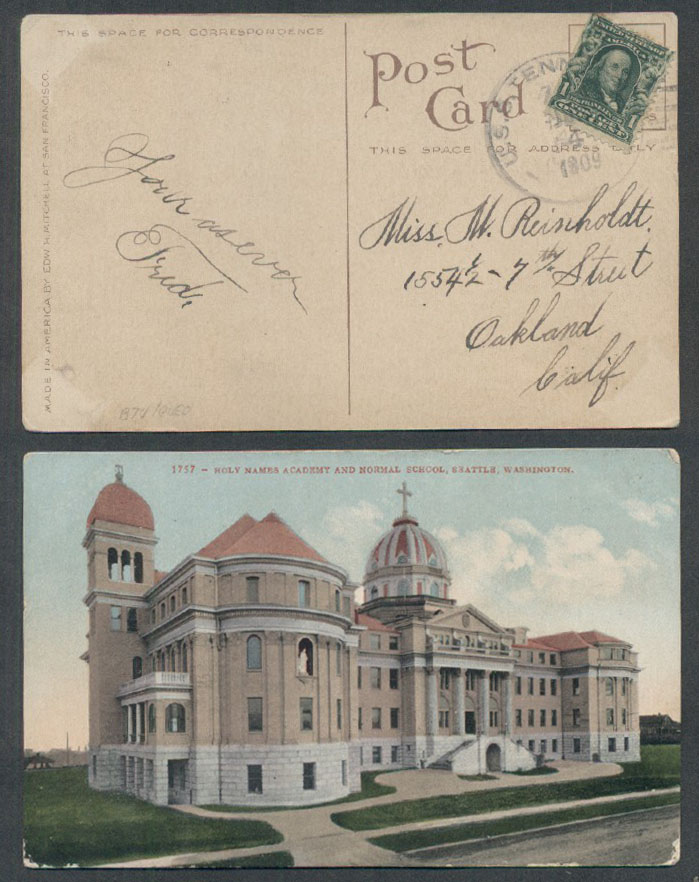 THIS SPACE FOR CORRESPONDENCE
MADE IN AMERICA BY EDW. H. MITCHELL AT SAN FRANCISCO.
Post
Card
THIS SPACE FOR ADDRESS ONLY
U.S.S. TENN
4
1909
1 1
ONE CENT
Your as ever
Fred.
Miss. M. Reinholdt.
1554½ - 7th Street
Oakland
Calif.
1757 - HOLY NAMES ACADEMY AND NORMAL SCHOOL, SEATTLE, WASHINGTON.